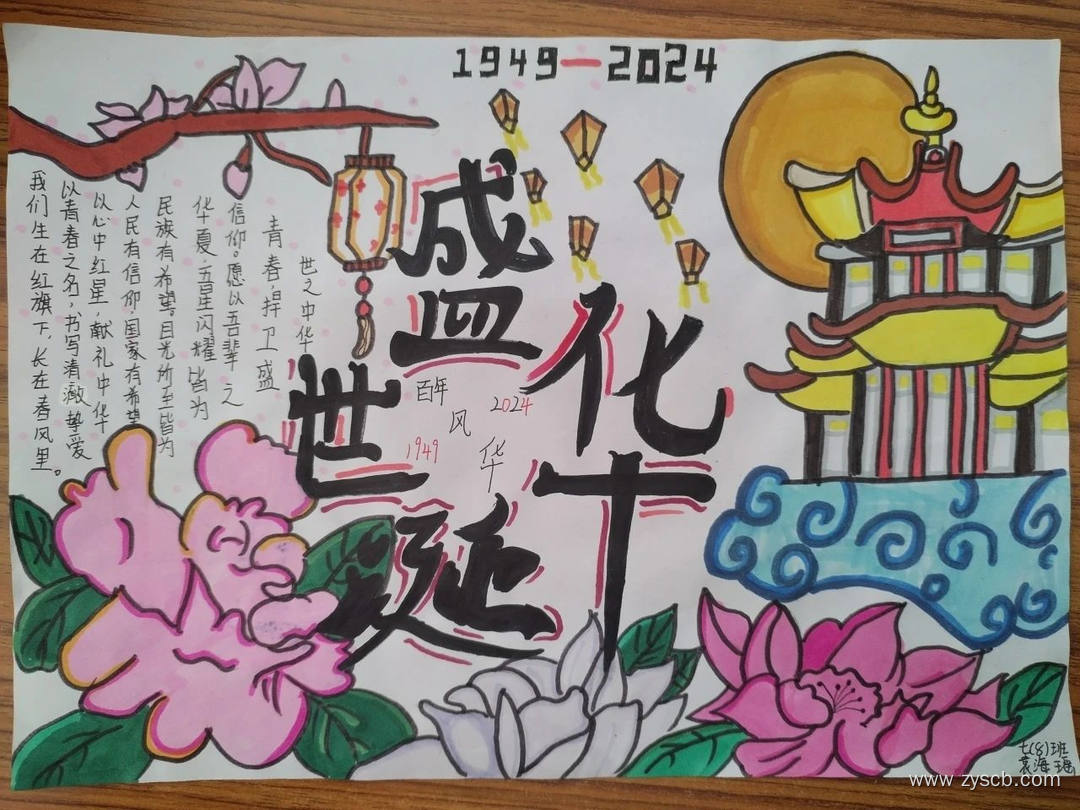 1949—2024
盛世华诞
百年风华
1949
2024
我们生在红旗下,长在春风里。
以青春之名,书写清澈挚爱
以心中红星,献礼中华
人民有信仰,国家有希望
民族有希望。目光所至皆为
华夏,五星闪耀皆为
信仰。愿以吾辈之
青春,捍卫盛
世之中华
七(8)班
www.zyscb.com